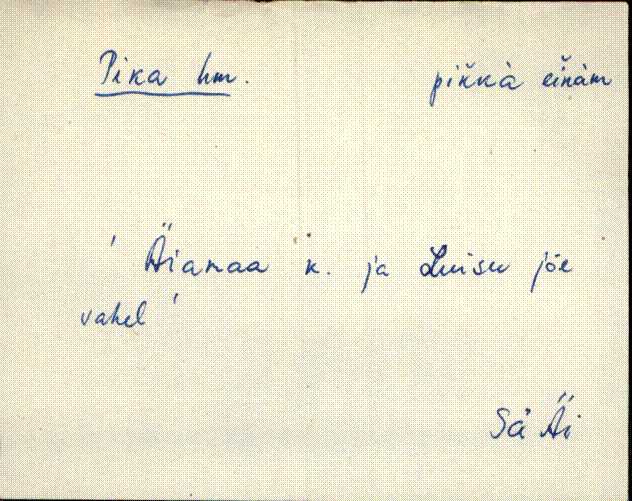 Pika hm. pik̆kà ein̆àm
' Äianaa k. ja Luisu jõe
vahel '
Sä Äi